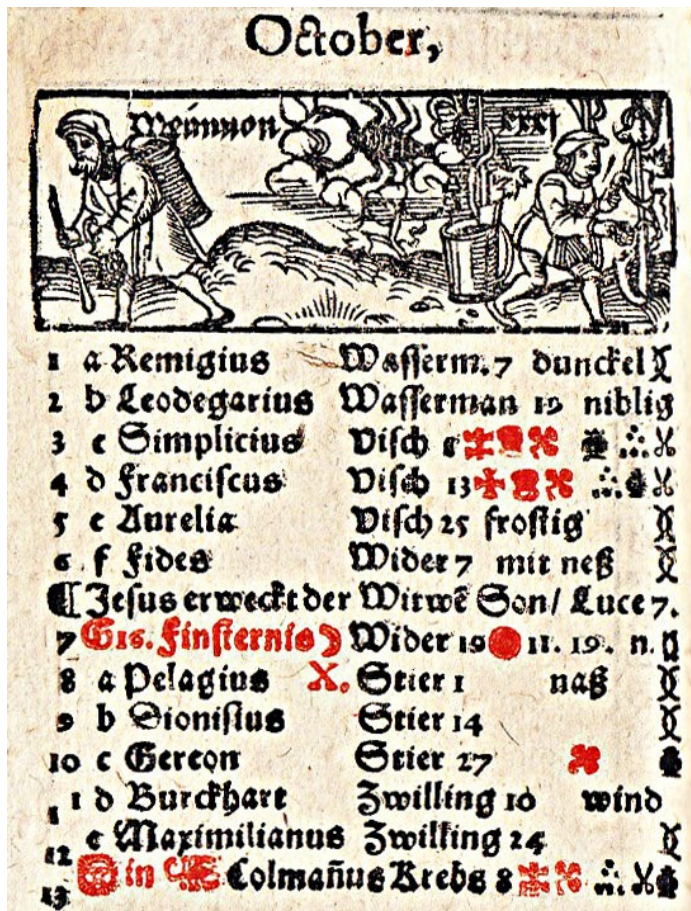 October,
Weinmon xxxj
1 a Remigius Wasserm. 7 dunckel
2 b Leodegarius Wasserman 19 niblig
3 c Simplicius Visch
4 d Franciscus Visch 13
5 e Aurelia Visch 25 frostig
6 f Fides Wider 7 mit neß
¶ Jesus erweckt der Witwē Son/ Luce 7.
7 G 16. Finsternis Wider 19 11. 19. n.
8 a Pelagius X. Stier 1 naß
9 b Dionisius Stier 14
10 c Gereon Stier 27
11 d Burckhart Zwilling 10 wind
12 e Maximilianus Zwilling 24
13 in Colmañus Krebs 8